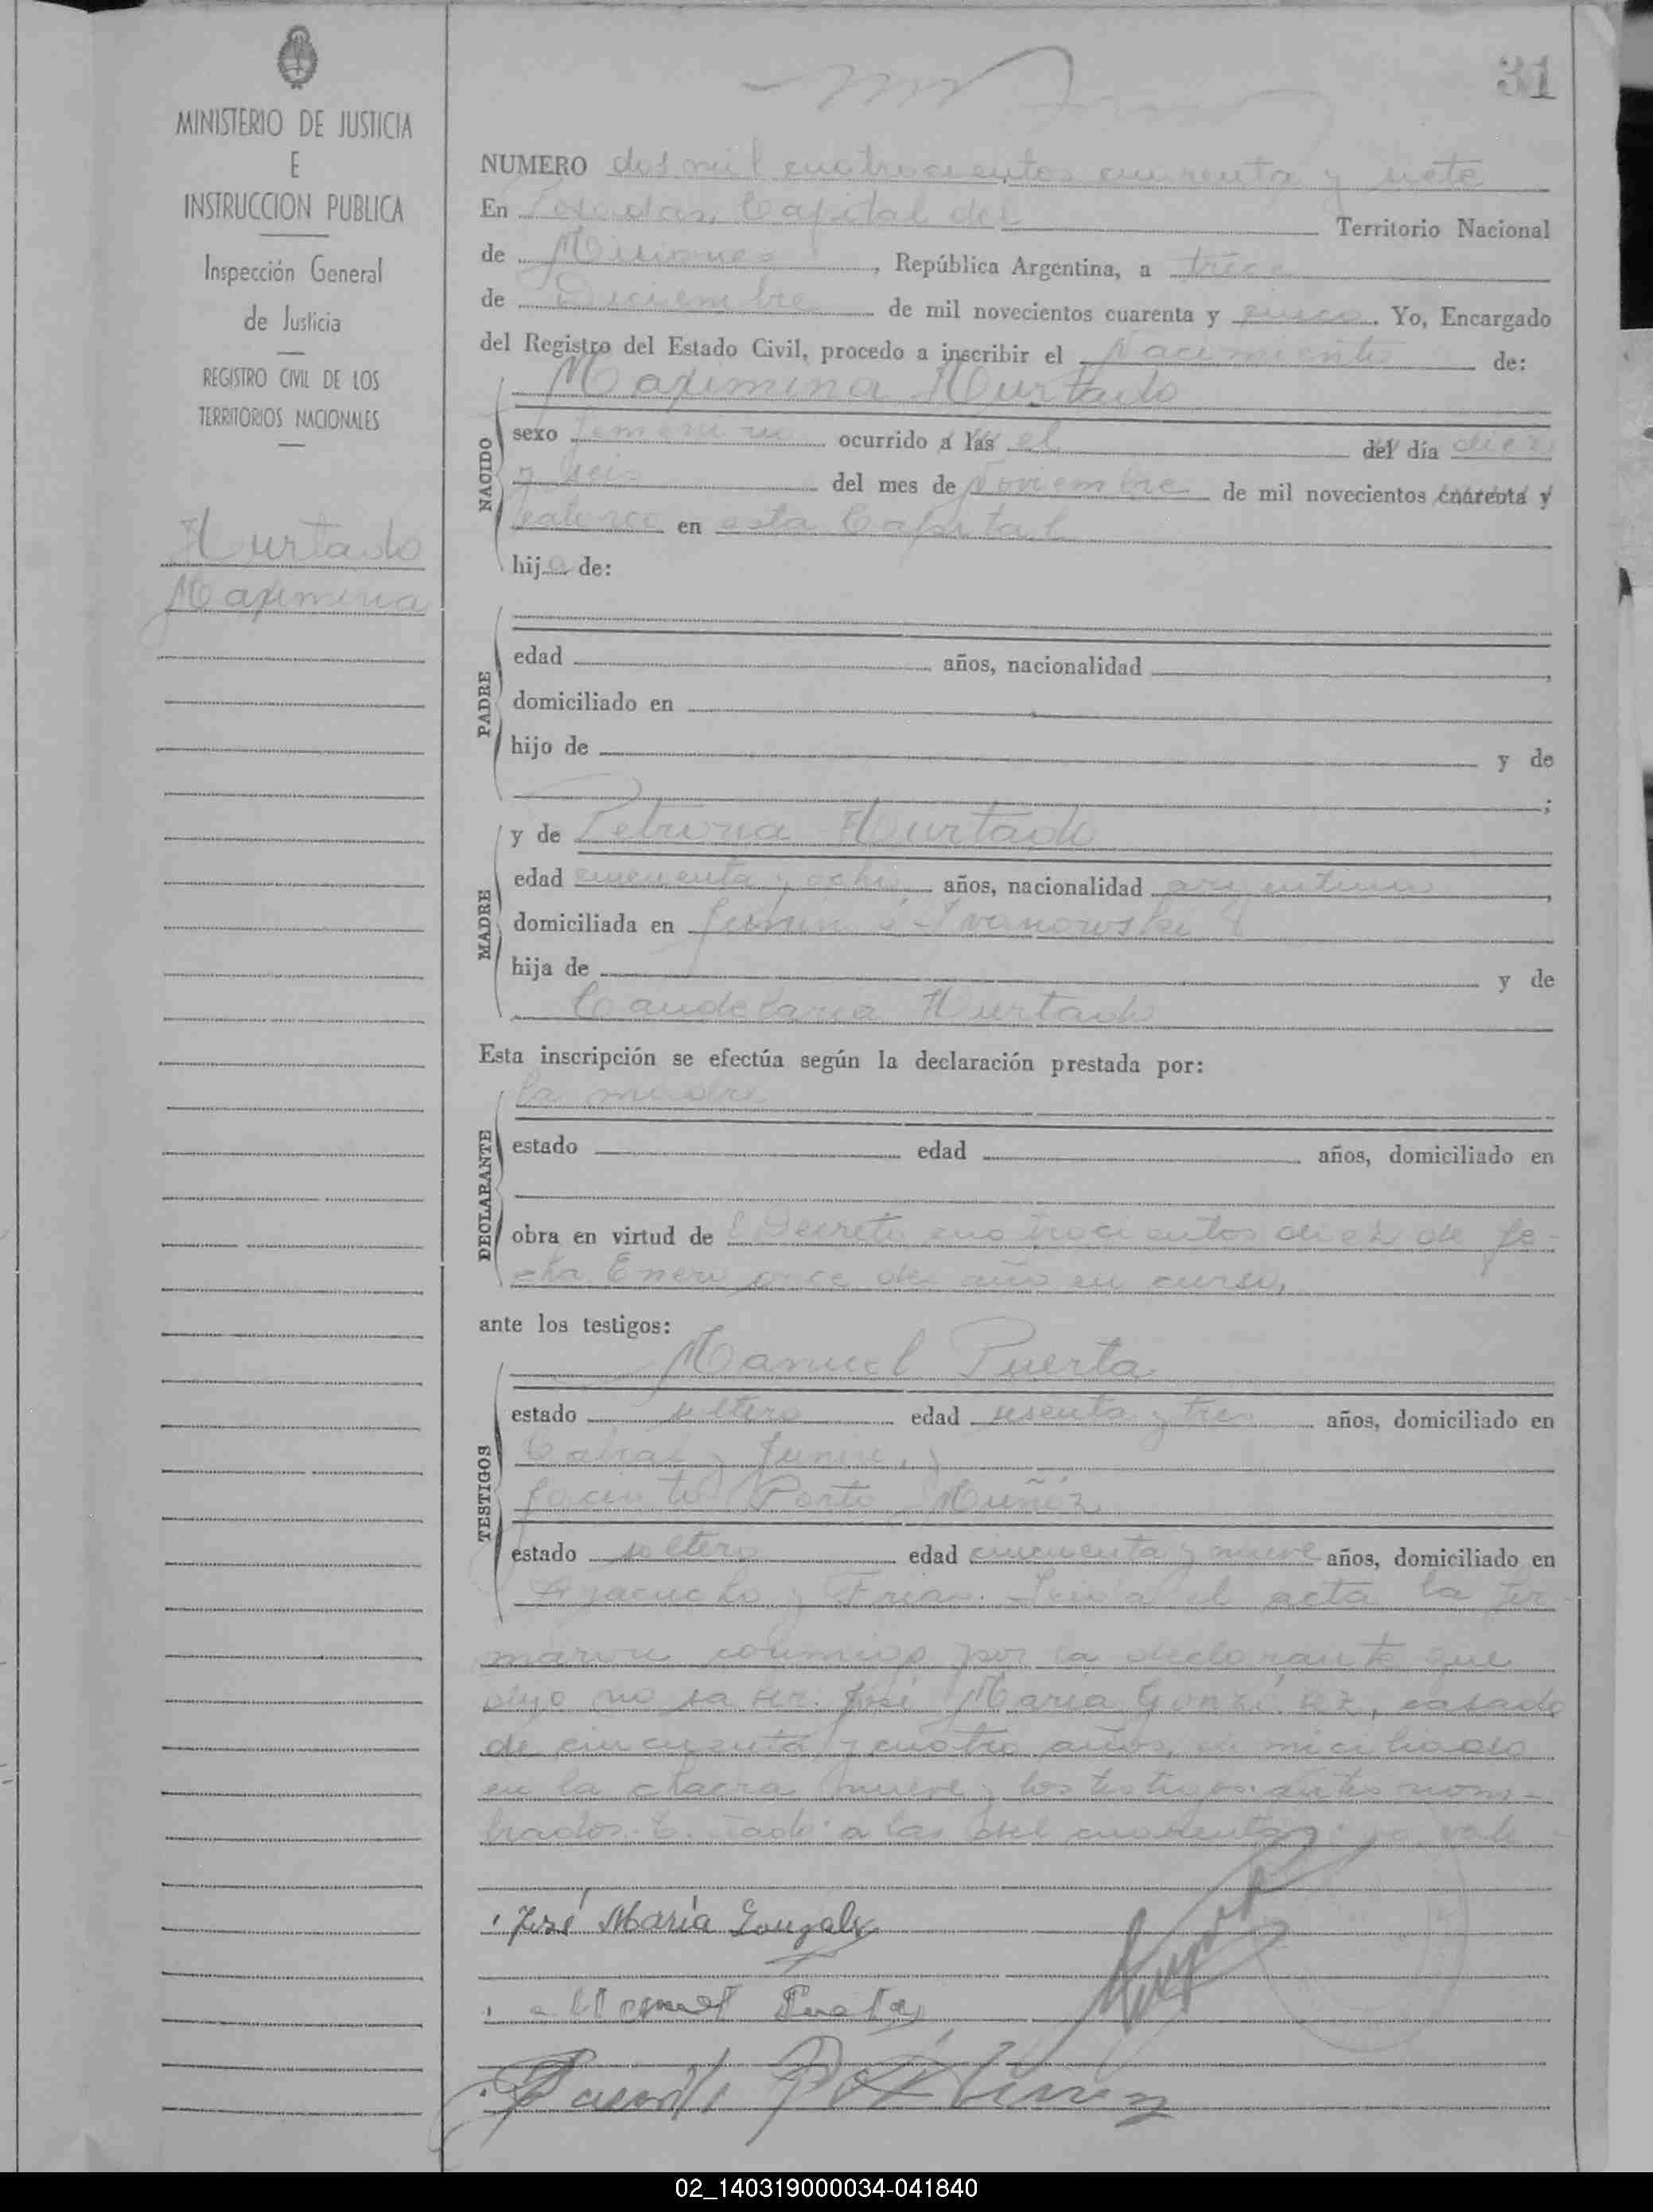 31
MINISTERIO DE JUSTICIA
E
INSTRUCCION PUBLICA
Inspección General
de Justicia
REGISTRO CIVIL DE LOS
TERRITORIOS NACIONALES
Hurtado
Maximina
NUMERO dos mil cuatrocientos cuarenta y siete
En Posadas, Capital del Territorio Nacional
de Misiones, República Argentina, a trece
de Diciembre de mil novecientos cuarenta y cinco. Yo, Encargado
del Registro del Estado Civil, procedo a inscribir el Nacimiento de:
Maximina Hurtado
NACIDO
sexo femenino ocurrido a las el del día diez
y seis del mes de Noviembre de mil novecientos cuarenta y
catorce en esta Capital
hija de:
PADRE
edad años, nacionalidad ,
domiciliado en
hijo de y de
;
MADRE
y de Petrona Hurtado
edad cincuenta y ocho años, nacionalidad argentina,
domiciliada en Junin é Ivanowski
hija de y de
Candelaria Hurtado
Esta inscripción se efectúa según la declaración prestada por:
la madre
DECLARANTE
estado edad años, domiciliado en
obra en virtud de l Decreto cuatrocientos diez de fe-
cha Enero once de año en curso,
ante los testigos:
Manuel Puerta
TESTIGOS
estado soltero edad sesenta y tres años, domiciliado en
Cabral y Junin, y
Jacinto Porto Muñóz
estado soltero edad cincuenta y nueve años, domiciliado en
Ayacucho y Frias. Leida el acta la fir-
maron conmigo por la declarante que
dijo no saber José María González, casado
de cincuenta y cuatro años, domiciliado
en la chacra nueve y los testigos antes nom-
brados. a las del cuarenta y no vale
José María Gonzalez
Manuel Puerta
02_140319000034-041840